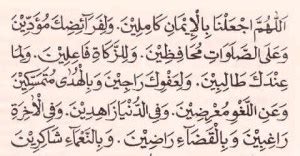 اَللّٰهُمَّ اجْعَلْنَا بِالْاِيْمَانِ كَامِلِيْنَ. وَلِفَرَآئِضِكَ مُؤَدِّيْنَ
وَعَلَى الصَّلَوَاتِ مُحَافِظِيْنَ. وَلِلزَّكَاةِ فَاعِلِيْنَ. وَلِمَا
عِنْدَكَ طَالِبِيْنَ. وَلِعَفْوِكَ رَاجِيْنَ وَبِالْهُدٰى مُتَمَسِّكِيْنَ
وَعَنِ اللَّغْوِ مُعْرِضِيْنَ. وَفِى الدُّنْيَا زَاهِدِيْنَ. وَفِى الْاٰخِرَةِ
رَاغِبِيْنَ وَبِالْقَضَآءِ رَاضِيْنَ. وَبِالنَّعْمَآءِ شَاكِرِيْنَ